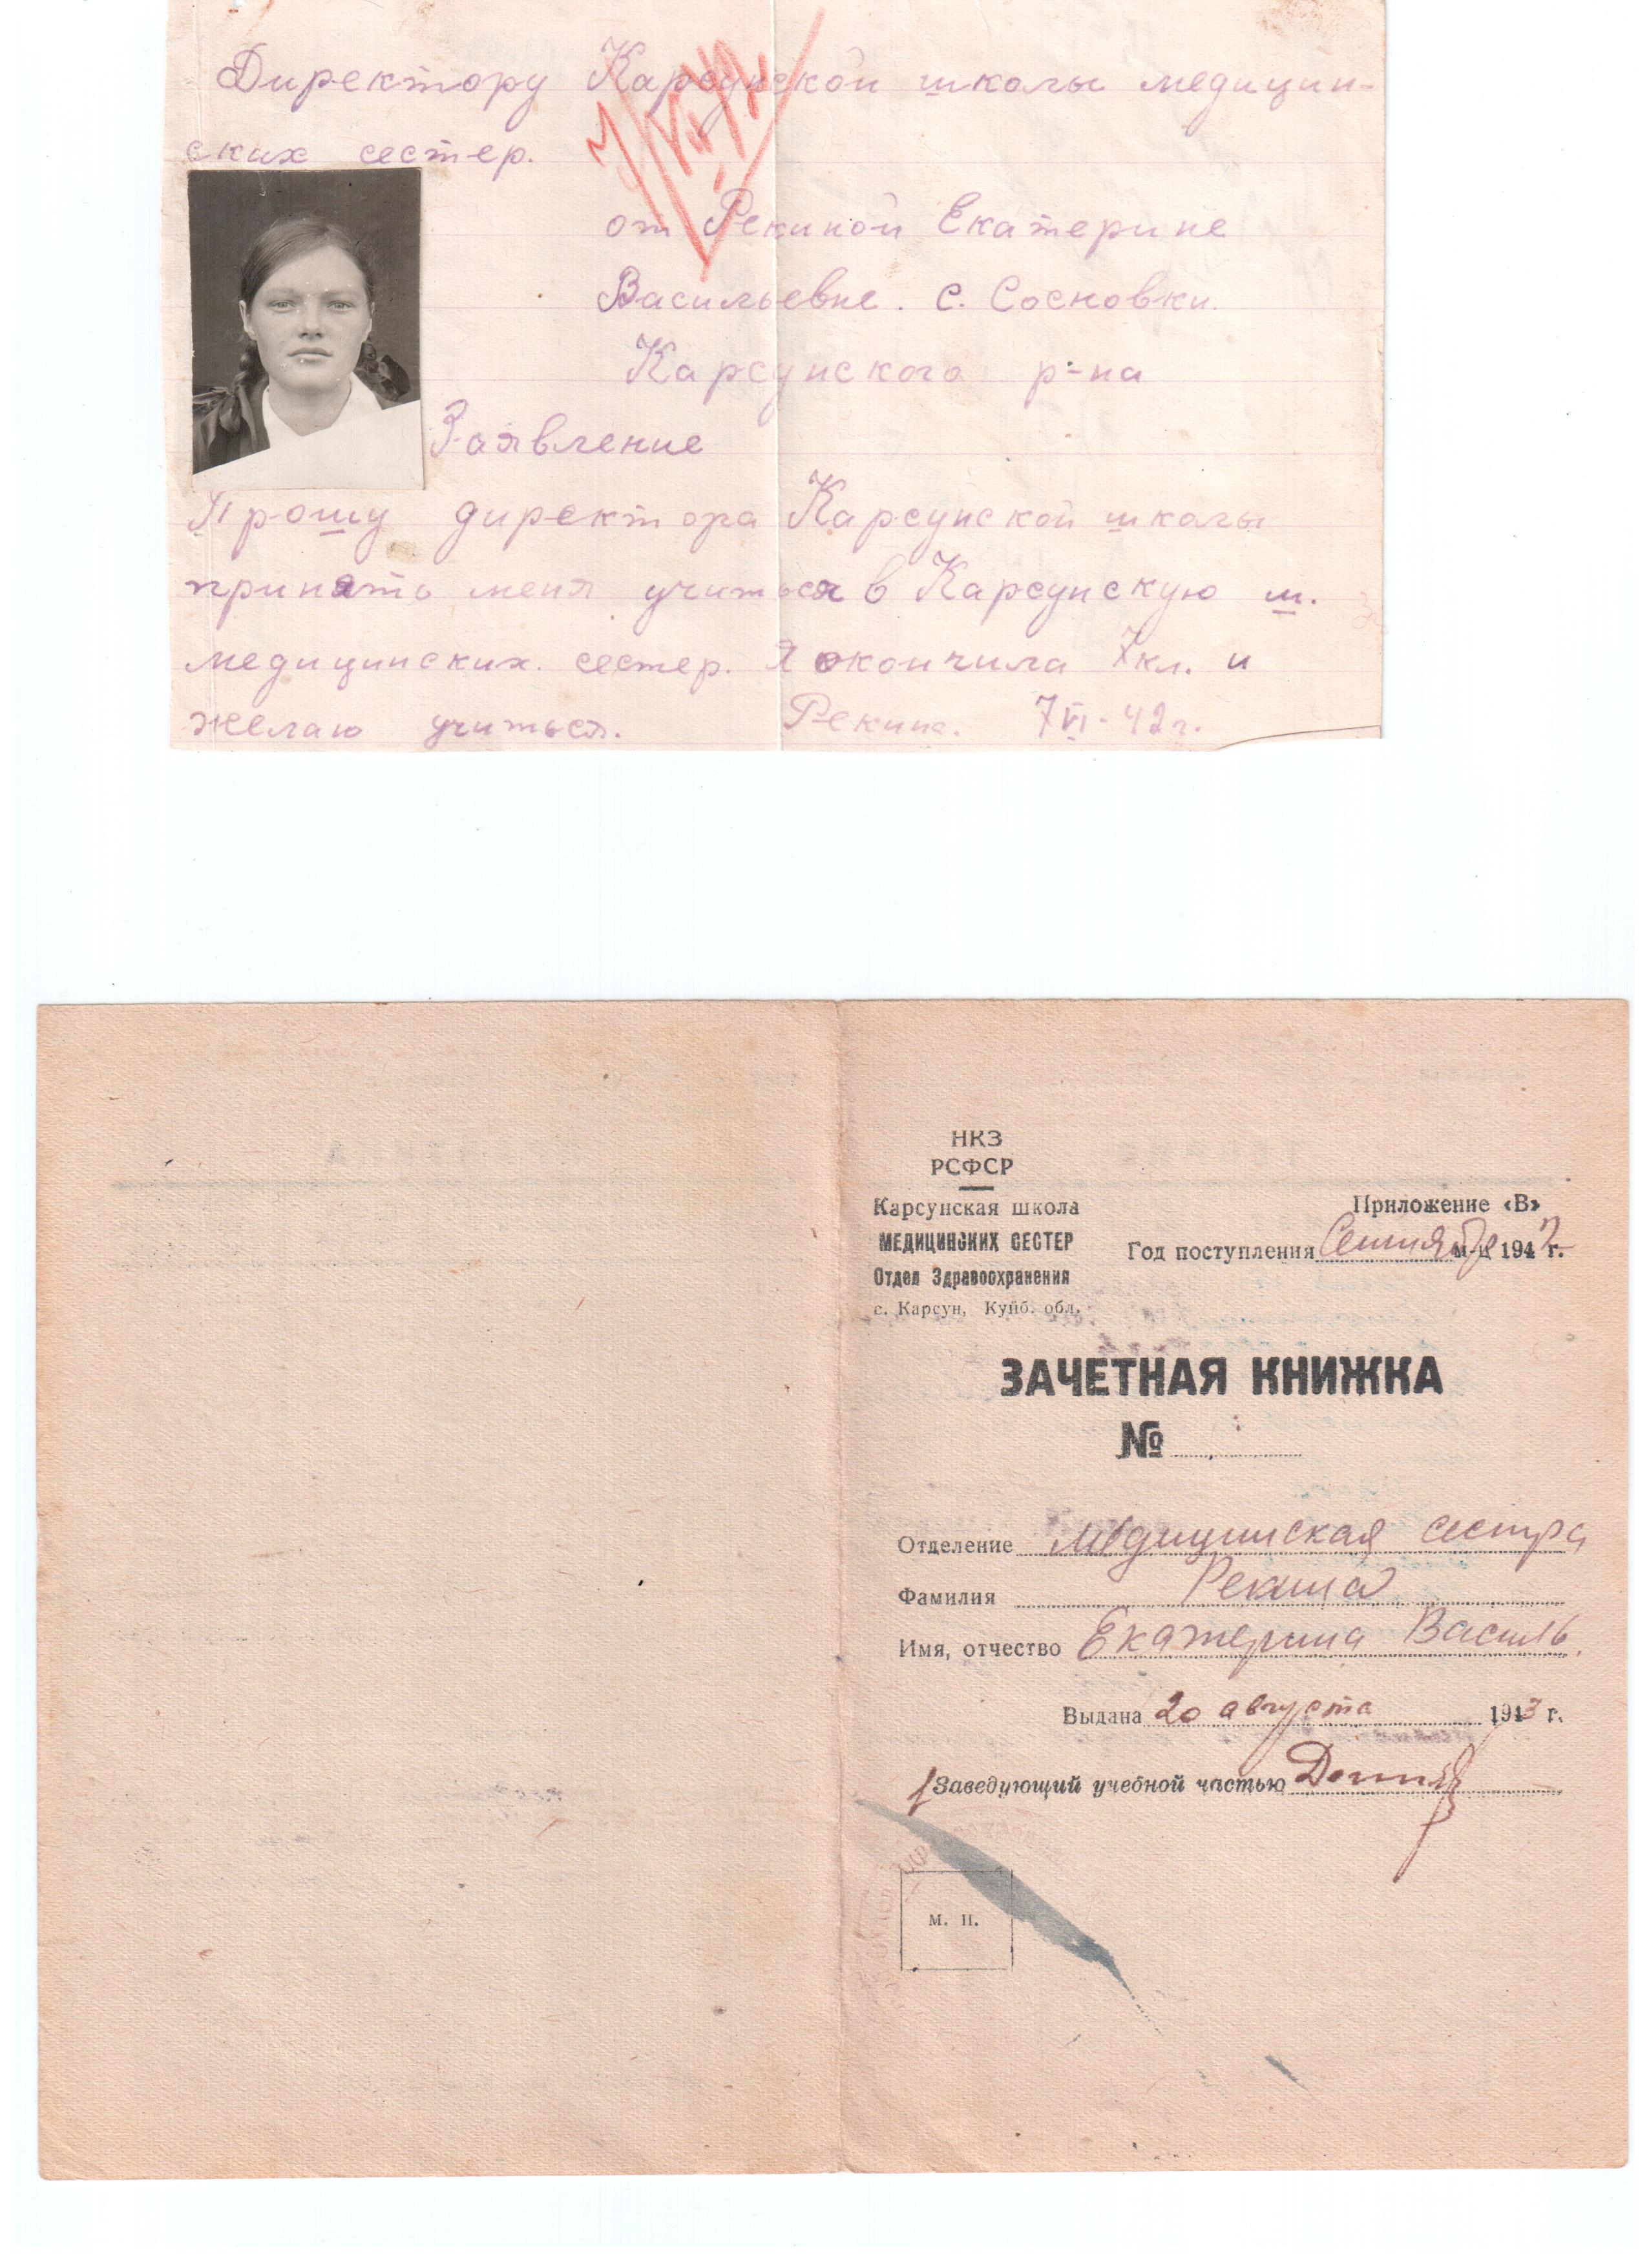 Директору Карсунской школы медицин-
ских сестер.
от Рекиной Екатерине
Васильевне. с. Сосновки.
Карсунского р-на
Заявление
Прошу директора Карсунской школы
принять меня учиться в Карсунскую ш.
медицинских. сестер. Я окончила 7кл. и
желаю учиться. Рекина. 7 VI - 42 г.
НКЗ
РСФСР
Карсунская школа
МЕДИЦИНСКИХ СЕСТЕР
Отдел Здравоохранения
с. Карсун, Куйб. обл.
Приложение «В»
Год поступления Сентябр м-ц 1942 г.
ЗАЧЕТНАЯ КНИЖКА
№
Отделение медицинская сестра
Фамилия Рекина
Имя, отчество Екатерина Василь.
Выдана 20 августа 1943 г.
Заведующий учебной частью
м. п.